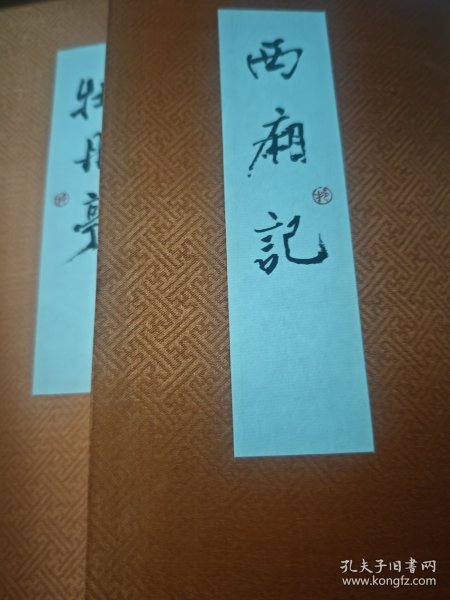 西廂記
牡丹亭
孔夫子旧书网
www.kongfz.com